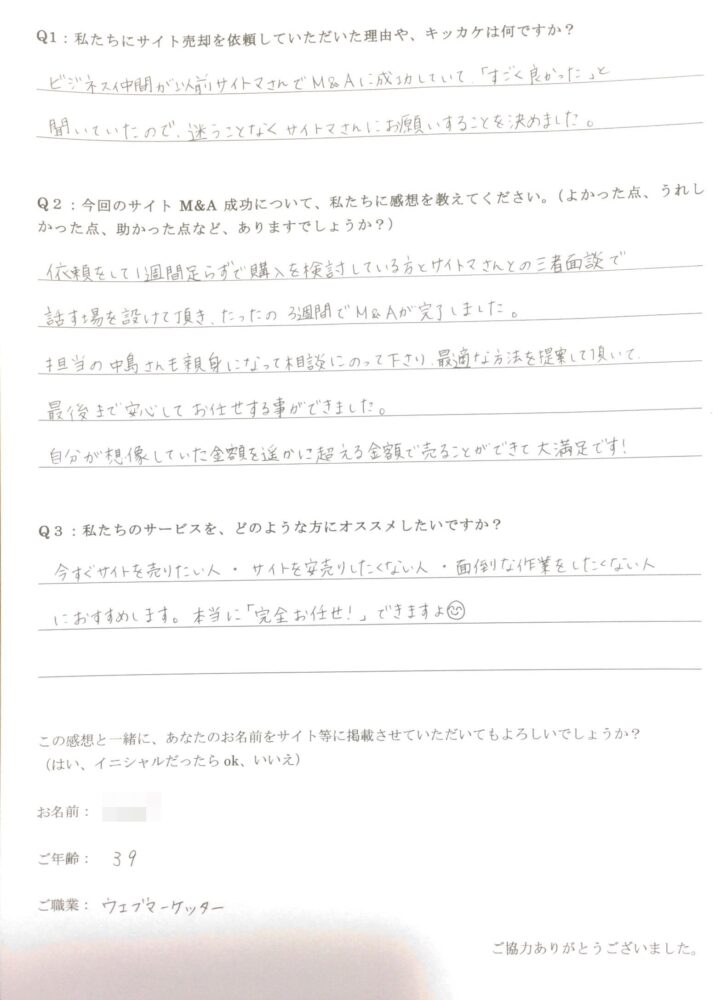 Q1：私たちにサイト売却を依頼していただいた理由や、キッカケは何ですか？
ビジネス仲間が以前サイトマさんでM&Aに成功していて、「すごく良かった」と
聞いていたので、迷うことなくサイトマさんにお願いすることを決めました。
Q２：今回のサイト M&A 成功について、私たちに感想を教えてください。（よかった点、うれし
かった点、助かった点など、ありますでしょうか？）
依頼をして1週間足らずで購入を検討している方とサイトマさんとの三者面談で
話す場を設けて頂き、たったの3週間でM&Aが完了しました。
担当の中島さんも親身になって相談にのって下さり、最適な方法を提案して頂いて、
最後まで安心してお任せする事ができました。
自分が想像していた金額を遥かに超える金額で売ることができて大満足です！
Q３：私たちのサービスを、どのような方にオススメしたいですか？
今すぐサイトを売りたい人・サイトを安売りしたくない人・面倒な作業をしたくない人
におすすめします。本当に「完全お任せ！」できますよ😊
この感想と一緒に、あなたのお名前をサイト等に掲載させていただいてもよろしいでしょうか？
（はい、イニシャルだったら ok、いいえ）
お名前：
ご年齢： 39
ご職業： ウェブマーケッター
ご協力ありがとうございました。